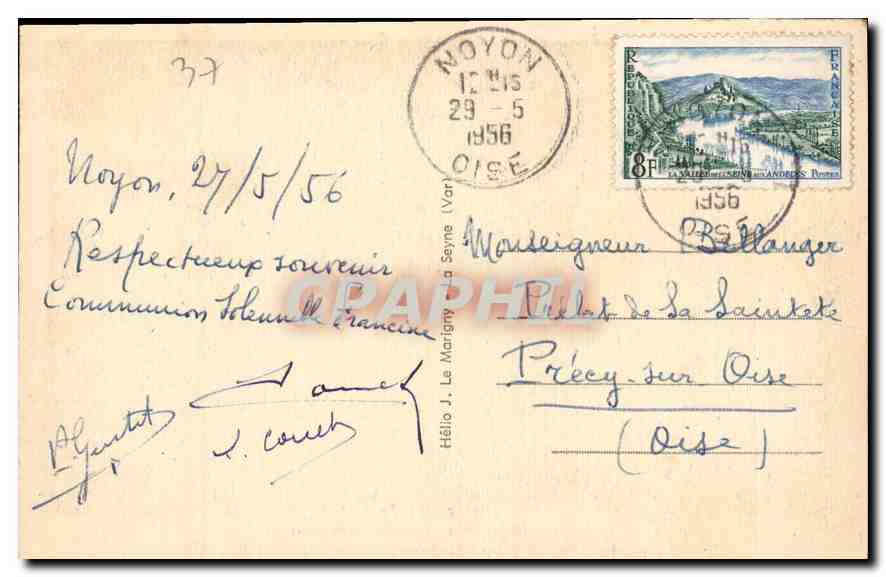 37
NOYON
12H15
29 - 5
1956
OISE
REPUBLIQUE
FRANCAISE
8F
LA VALLEE DE LA SEINE AUX ANDELYS POSTES
1956
OISE
Noyon, 27/5/56
Respectueux souvenir
Communion Solennelle Francine
Monseigneur Bellanger
Prélat de Sa Sainteté
Précy-sur Oise
(Oise)
Hélio J. Le Marigny La Seyne (Var)
CPAPHIL